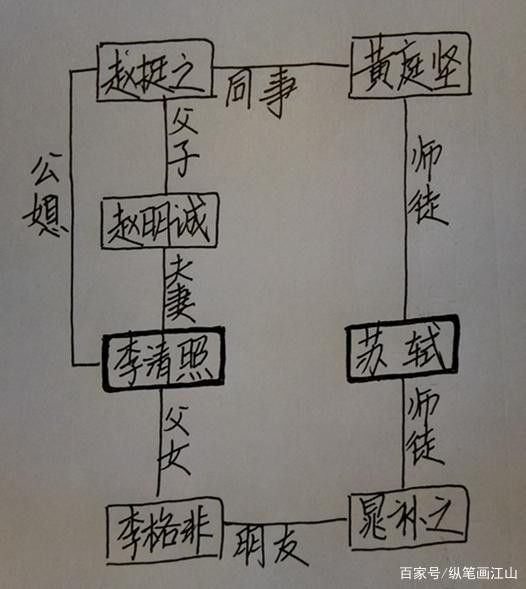 赵挺之
同事
黄庭坚
父子
师徒
公媳
赵明诚
夫妻
李清照
苏轼
父女
师徒
李格非
朋友
晁补之
百家号/纵笔画江山